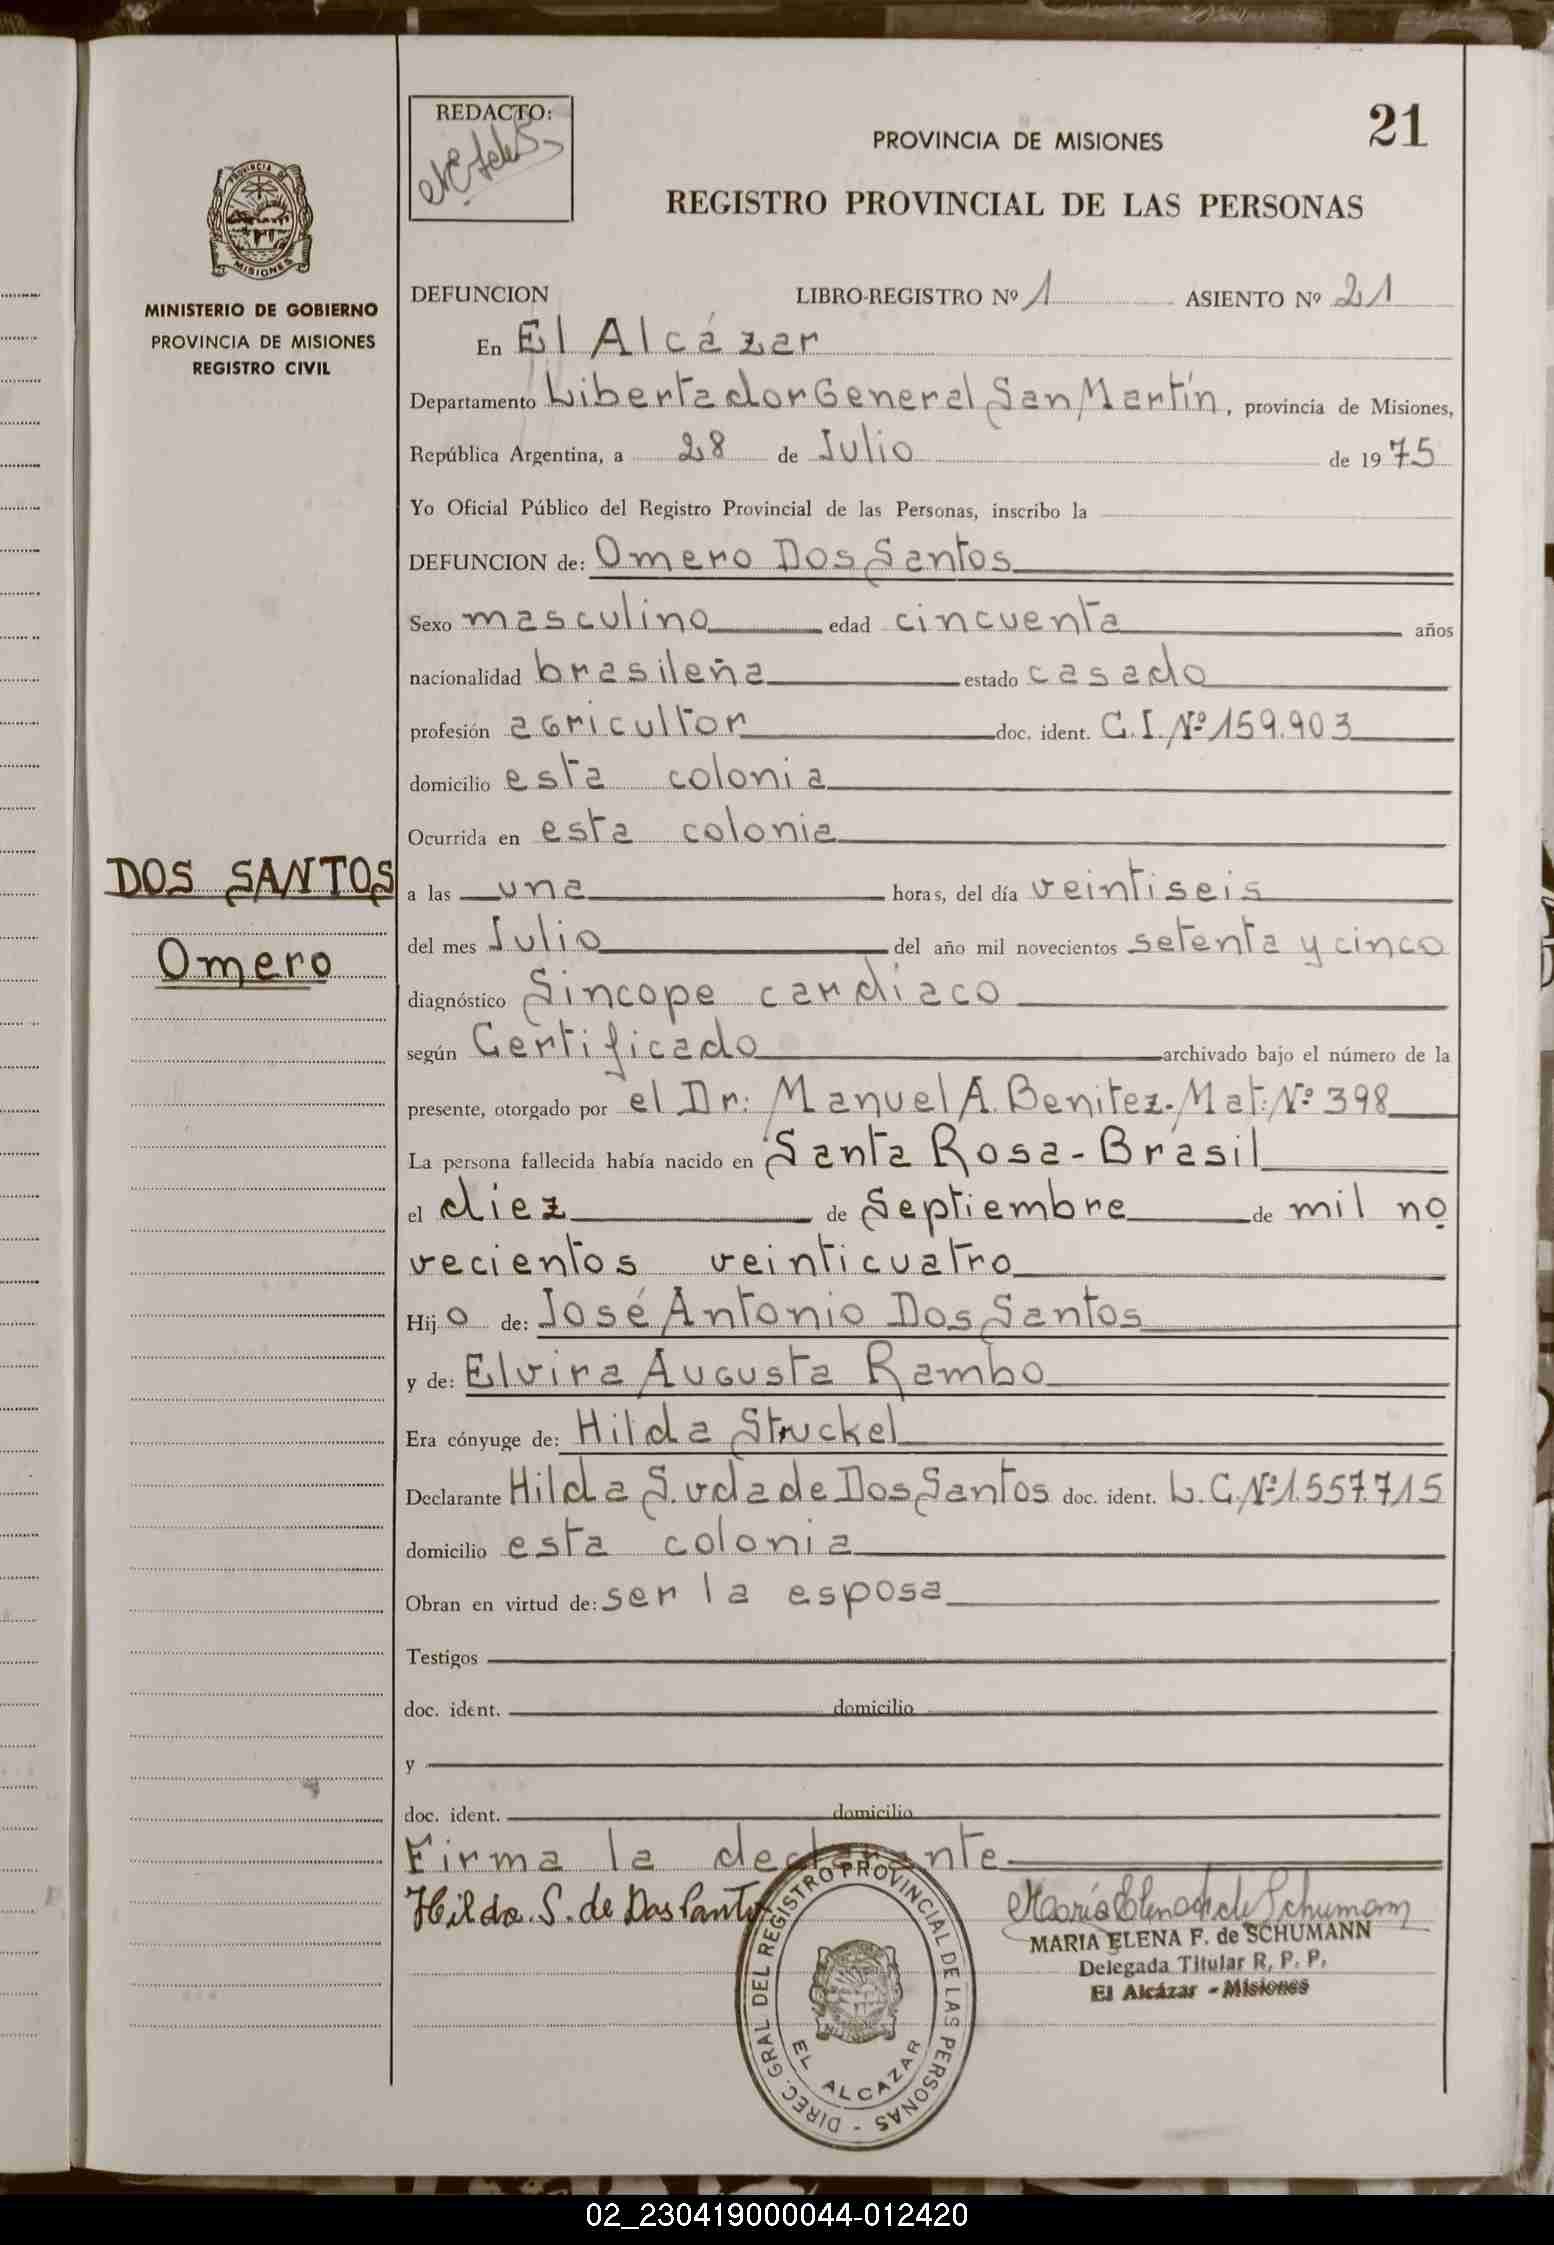 REDACTO:
21
PROVINCIA DE MISIONES
REGISTRO PROVINCIAL DE LAS PERSONAS
PROVINCIA DE
MISIONES
MINISTERIO DE GOBIERNO
PROVINCIA DE MISIONES
REGISTRO CIVIL
DEFUNCION LIBRO-REGISTRO Nº 1 ASIENTO Nº 21
En El Alcázar
Departamento Libertador General San Martín, provincia de Misiones,
República Argentina, a 28 de Julio de 1975
Yo Oficial Público del Registro Provincial de las Personas, inscribo la
DEFUNCION de: Omero Dos Santos
Sexo masculino edad cincuenta años
nacionalidad brasileña estado casado
profesión agricultor doc. ident. C.I. Nº 159.903
domicilio esta colonia
Ocurrida en esta colonia
DOS SANTOS
Omero
a las una horas, del día veintiseis
del mes Julio del año mil novecientos setenta y cinco
diagnóstico Sincope cardiaco
según Certificado archivado bajo el número de la
presente, otorgado por el Dr: Manuel A. Benitez. Mat: Nº 398
La persona fallecida había nacido en Santa Rosa - Brasil
el diez de Septiembre de mil no
vecientos veinticuatro
Hijo de: José Antonio Dos Santos
y de: Elvira Augusta Rambo
Era cónyuge de: Hilda Struckel
Declarante Hilda S. vda de Dos Santos doc. ident. L.C. Nº 1.557.715
domicilio esta colonia
Obran en virtud de: ser la esposa
Testigos
doc. ident. domicilio
y
doc. ident. domicilio
Firma la declarante
Hilda. S. de Dos Santos
MARIA ELENA F. de SCHUMANN
Delegada Titular R. P. P.
El Alcázar - Misiones
DIREC. GRAL DEL REGISTRO PROVINCIAL DE LAS PERSONAS -
EL ALCAZAR
02_230419000044-012420